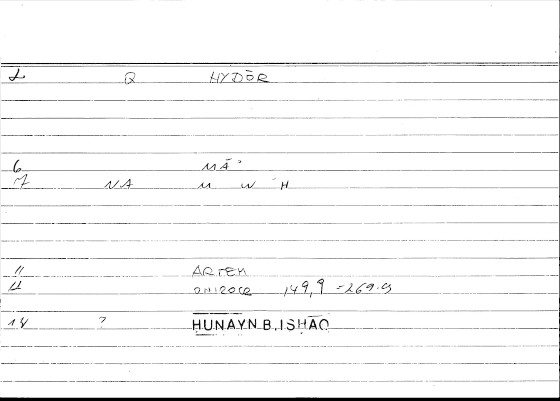 2 Q HYDŌR
6 MĀ°
7 NA M W H
11 ARTEM
149,9 = 269.
14 ? HUNAYN.B.ISHĀQ